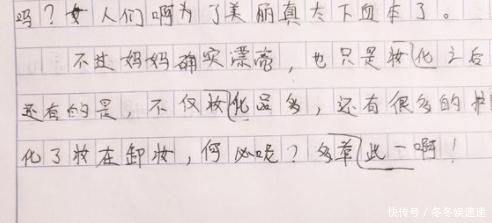 吗？女人们啊为了美丽真太下血本了。
不过妈妈确实漂亮，也只是妆化之后
还有的是，不仅妆化品多，还有很多的护
化了妆在卸妆，何必呢？多举此一啊！
快传号/冬冬娱速递